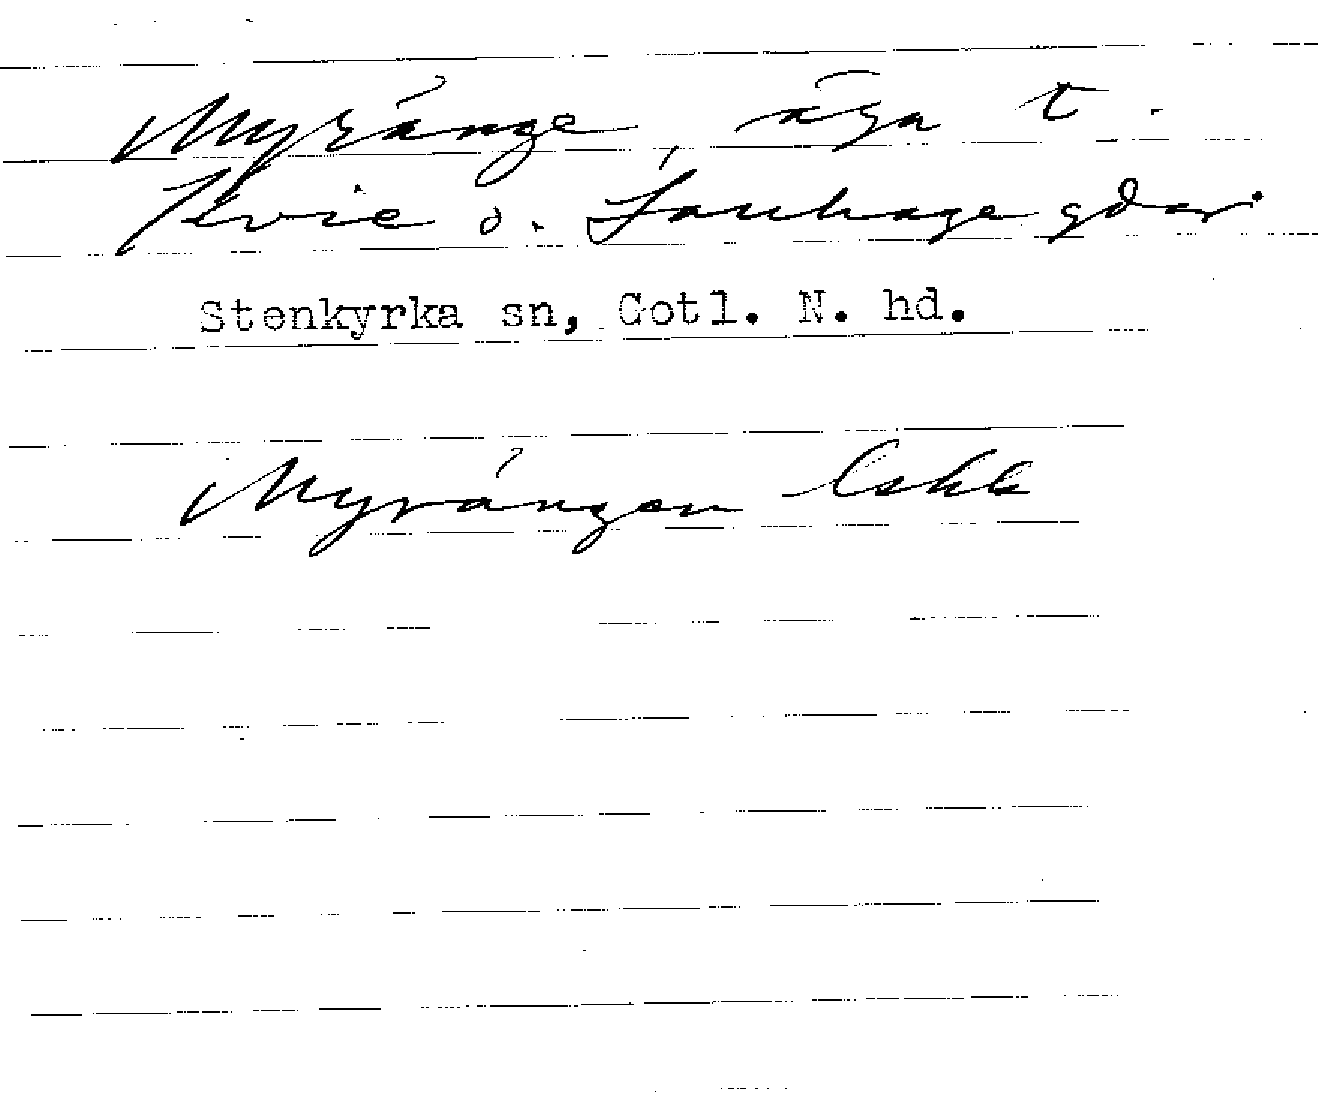 Myränge, äga t.
Kvie o. Sauhage gdar.
Stenkyrka sn, Gotl. N. hd.
Myrängen